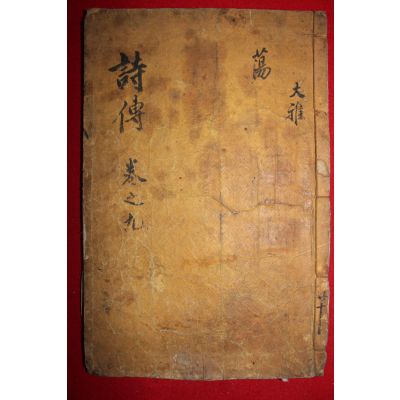 大雅
蕩
詩傳 卷之九